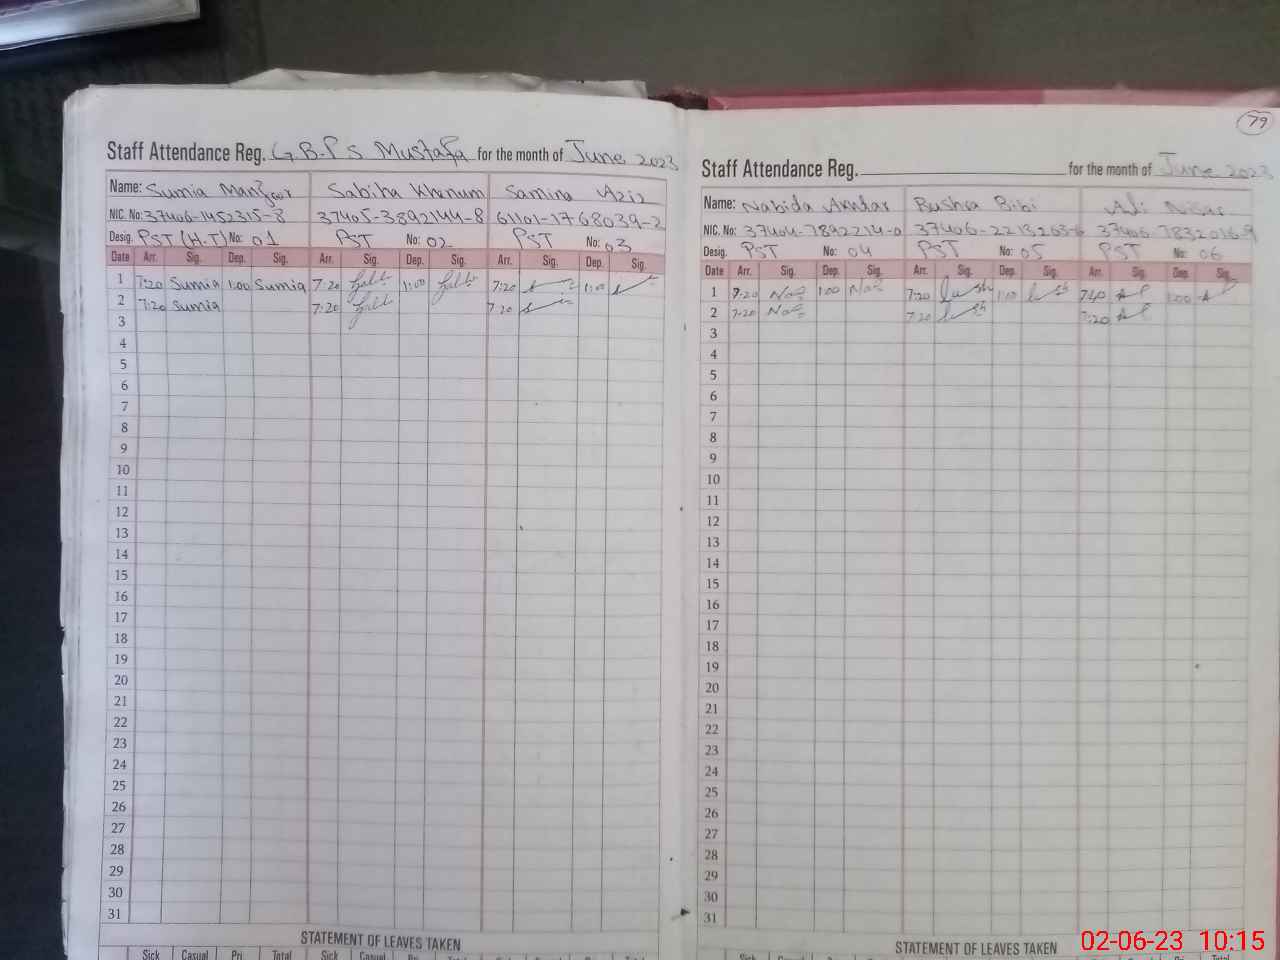 79
Staff Attendance Reg. G.B.P S Mustafa for the month of June 2023
Name: Sumia Manzoor Sabiha Khanum Samina Aziz
NIC. No: 37406-1452315-8 37405-3892144-8 61101-1768039-2
Desig. PST (H.T) No: 01 PST No: 02 PST No: 03
Date Arr. Sig. Dep. Sig. Arr. Sig. Dep. Sig. Arr. Sig. Dep. Sig.
1 7:20 Sumia 1:00 Sumia 7:20 1:00 7:20 1:00
2 7:20 Sumia 7:20 7:20
3
4
5
6
7
8
9
10
11
12
13
14
15
16
17
18
19
20
21
22
23
24
25
26
27
28
29
30
31
STATEMENT OF LEAVES TAKEN
Sick Casual Pri. Total Sick Casual Pri. Total Sick Casual Pri. Total
Staff Attendance Reg. for the month of June 2023
Name: Nabida Akhtar Bushra Bibi Ali Nisar
NIC. No: 37404-7892214-0 37406-2213263-6 37406-7832016-9
Desig. PST No: 04 PST No: 05 PST No: 06
Date Arr. Sig. Dep. Sig. Arr. Sig. Dep. Sig. Arr. Sig. Dep. Sig.
1 7:20 1:00 7:20 1:00 7:20 1:00
2 7:20 7:20 7:20
3
4
5
6
7
8
9
10
11
12
13
14
15
16
17
18
19
20
21
22
23
24
25
26
27
28
29
30
31
STATEMENT OF LEAVES TAKEN
02-06-23 10:15